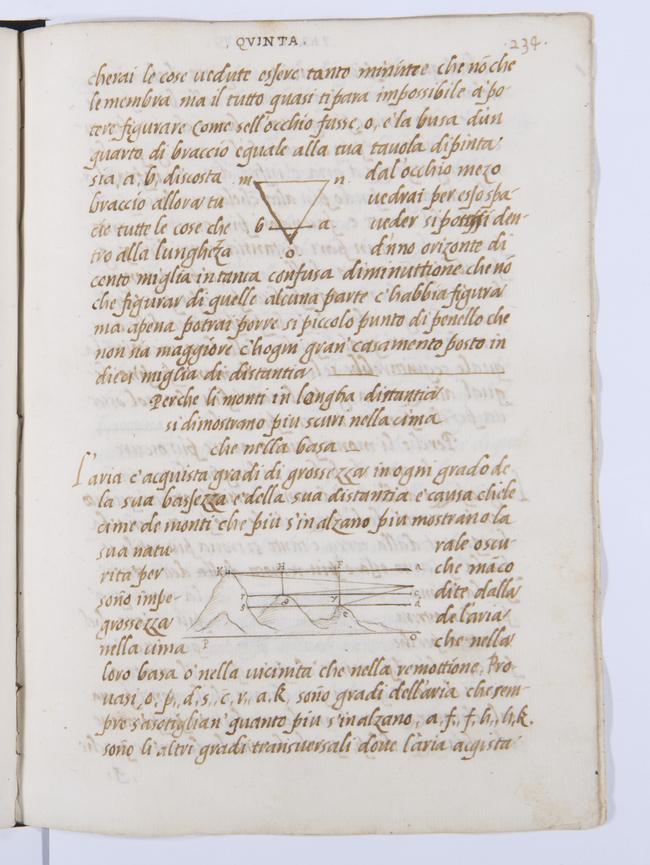 . QVINTA .
.234.
cherai le cose uedute essere tanto minute e che nō che
le membra ma il tutto quasi ti para impossibile a' po-
tere figurare Come sell'occhio fusse, o, e la busa d'un
quarto di braccio equale alla tua tauola dipinta
sia, a, b, discosta m n dal'occhio mezo
braccio allora tu uedrai per esso spa-
cio tutte le cose che b a ueder si possi den-
tro alla lunghezza o d'uno orizonte di
cento miglia in tanta confusa diminuttione che nō
che figurar di quelle alcuna parte c'habbia figura
ma apena potrai porre si piccolo punto di penello che
non sia maggiore c'hogni gran' casamento posto in
dieci miglia di distantia
Perche li monti in longha distantia
si dimostrano piu scuri nella cima
che nella basa
L'aria c'acquista gradi di grossezza in ogni grado de
la sua bassezza e' della sua distantia e' causa che le
cime de monti che piu s'inalzano piu mostrano la
sua natu rale oscu-
rita per K H F a che māco
sono impe- r c dite dalla
grossezza s d de l'aria
nella cima P o che nella
loro basa o' nella vicinita che nella remottione, Pro-
uasi, o, p, d, s, c, r, a, k, sono gradi dell'aria che sem-
pre s'asotiglian' quanto piu s'inalzano, a, f, f, h, h, k.
sono li altri gradi transuersali doue l'aria acqista